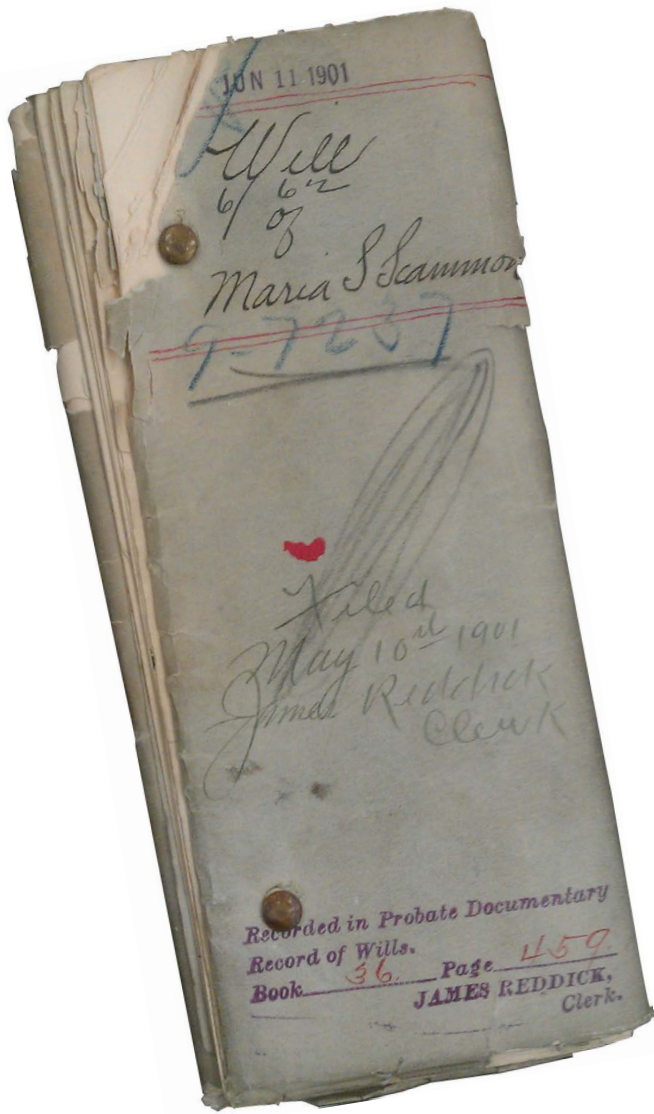 JUN 11 1901
Will
6/62
of
Maria S Scammon
9-7237
Filed
May 10th 1901
James Reddick
Clerk
Recorded in Probate Documentary
Record of Wills.
Book 36. Page 459.
JAMES REDDICK,
Clerk.